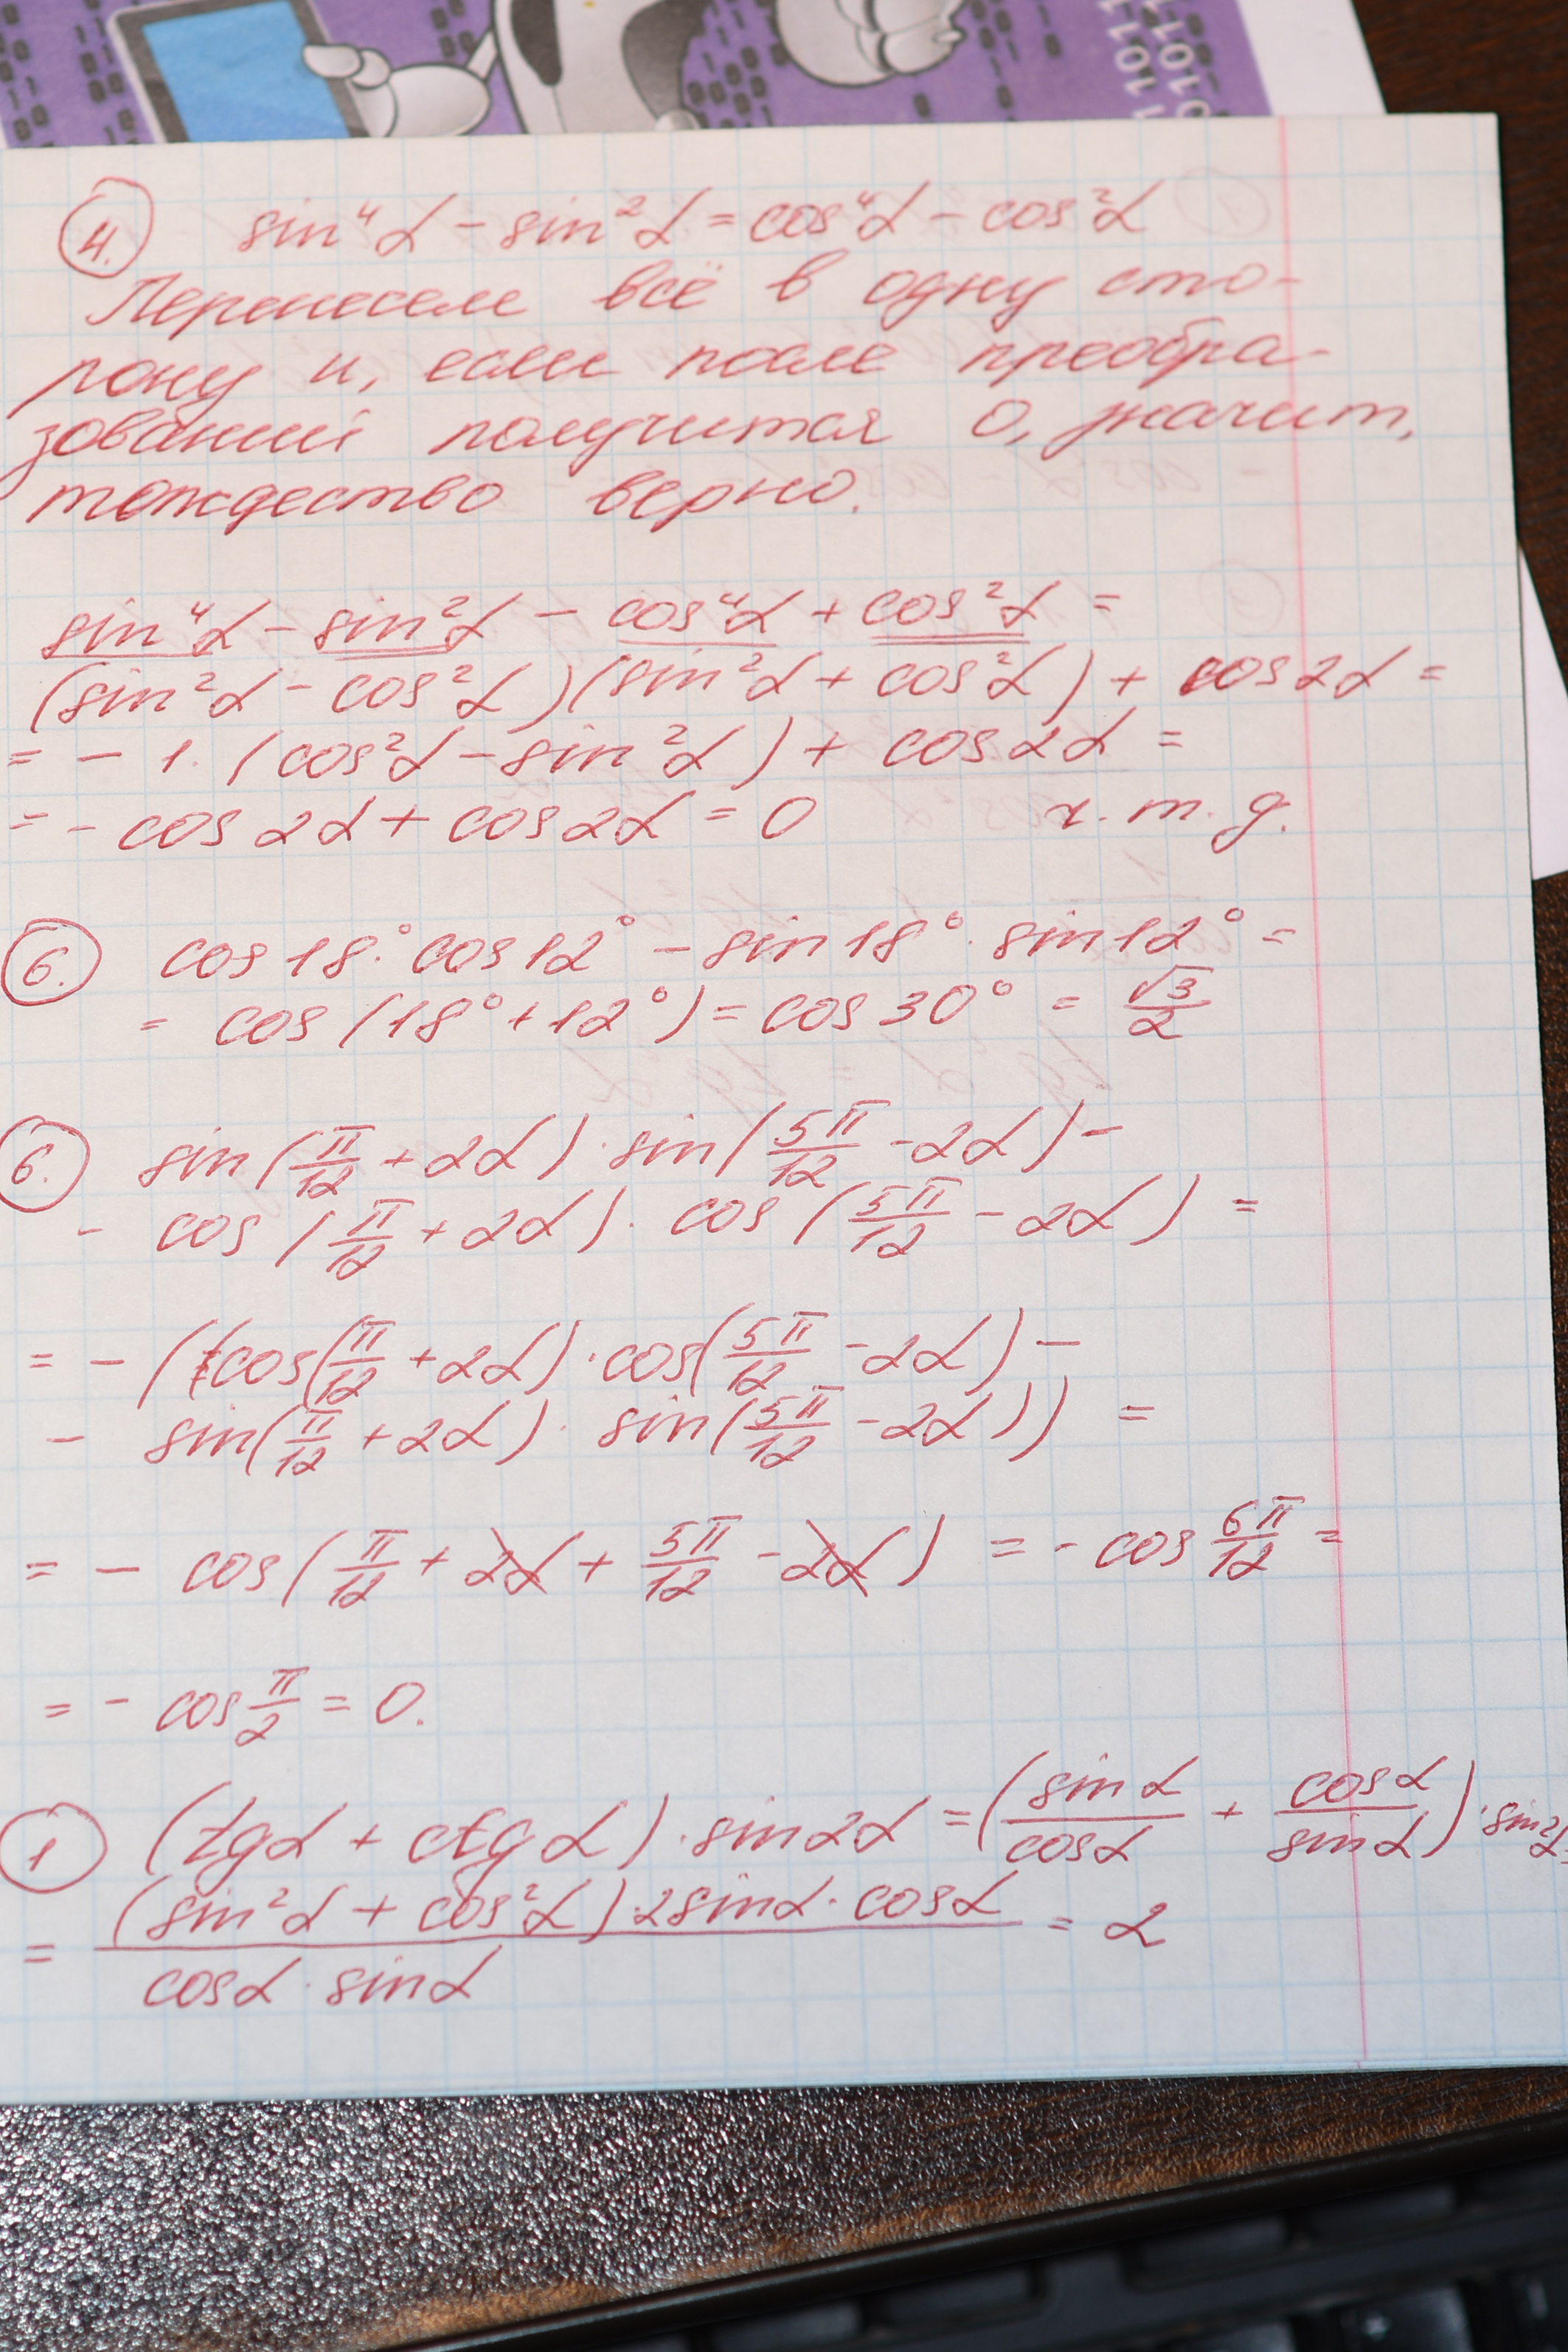 4. sin⁴α - sin²α = cos⁴α - cos²α
Перенесем всё в одну сто-
рону и, если после преобра-
зований получится 0, значит,
тождество верно.
sin⁴α - sin²α - cos⁴α + cos²α =
(sin²α - cos²α)(sin²α + cos²α) + cos2α =
= - 1·(cos²α - sin²α) + cos2α =
= - cos2α + cos2α = 0 ч.т.д.
6. cos18°·cos12° - sin18°·sin12° =
= cos(18°+12°) = cos30° = √3/2
6. sin(π/12 + 2α)·sin(5π/12 - 2α) -
- cos(π/12 + 2α)·cos(5π/12 - 2α) =
= - (cos(π/12 + 2α)·cos(5π/12 - 2α) -
- sin(π/12 + 2α)·sin(5π/12 - 2α)) =
= - cos(π/12 + 2α + 5π/12 - 2α) = - cos 6π/12 =
= - cos π/2 = 0.
1 (tgα + ctgα)·sin2α = (sinα/cosα + cosα/sinα)·sin2α=
= (sin²α + cos²α)·2sinα·cosα / cosα·sinα = 2